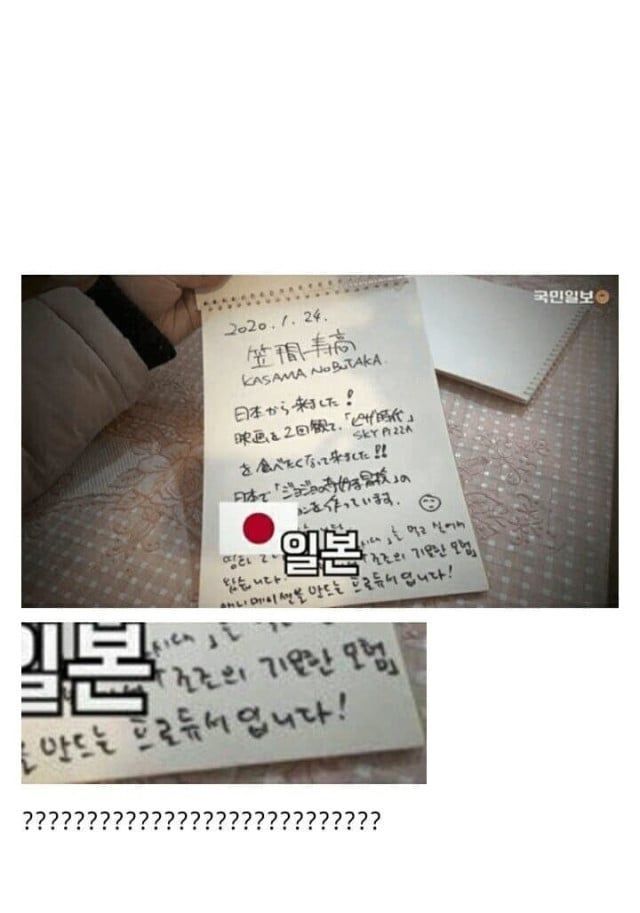 국민일보
2020.1.24.
笠間寿高
KASAMA NOBUTAKA
日本から来ました!
映画を2回観て、「ピザ時代」
SKY PIZZA
を食べたくなって来ました!!
日本で「ジョジョの奇妙な冒険」の
ンを作っています。
일본
」을 먹고 싶어서
왔습니다. 조조의 기묘한 모험」
애니메이션을 만드는 프로듀서입니다!
일본
조조의 기묘한 모험」
만드는 프로듀서입니다!
????????????????????????????